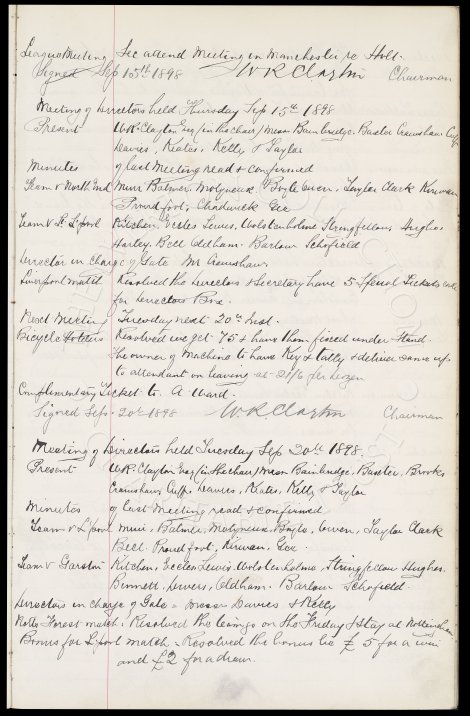 League Meeting Sec attend Meeting in Manchester re Holt.
Signed Sep 15th 1898 W R Clayton Chairman
Meeting of Directors held Thursday Sep 15th 1898
Present W.R. Clayton Esq (in the chair) Messrs Bainbridge, Baxter Crawshaw Cuffe
Davies, Keates, Kelly & Taylor
Minutes of last Meeting read & confirmed
Team v North End Muir Balmer, Molyneux, Boyle Owen, Taylor Clark Kirwan
Proudfoot, Chadwick Gee
Team v St L'pool Kitchen, Eccles Lewis, Wolstenholme Stringfellow Hughes
Hartley, Bell Oldham. Barlow Schofield
Director in Charge of Gate Mr Crawshaw
Liverpool Match Resolved the Directors & Secretary have 5 Special Tickets each
for Directors Box.
Next Meeting Tuesday next 20th Inst.
Bicycle Holders Resolved we get 75 & have them fixed under Stand
the owner of Machine to have Key & tally & deliver same up
to attendant on leaving at 21/6 per dozen
Complimentary Ticket to A Ward.
Signed Sep. 20th 1898 W R Clayton Chairman
Meeting of Directors held Tuesday Sep 20th 1898.
Present W.R. Clayton Esq (in the chair) Messrs Bainbridge, Baxter, Brooks
Crawshaw Cuffe, Davies, Keates, Kelly & Taylor
Minutes of last Meeting read & confirmed
Team v L'pool Muir, Balmer, Molyneux, Boyle, Owen, Taylor Clark
Bell. Proudfoot, Kirwan, Gee
Team v Garston Kitchen, Eccles Lewis, Wolstenholme, Stringfellow Hughes.
Bennett, Oldham. Barlow Schofield.
Directors in charge of Gate = Messrs Davies & Kelly
Notts Forest match. Resolved the team go on the Friday & stay at Nottingham
Bonus for L'pool match = Resolved the bonus be £5 for a win
and £2 for a draw.